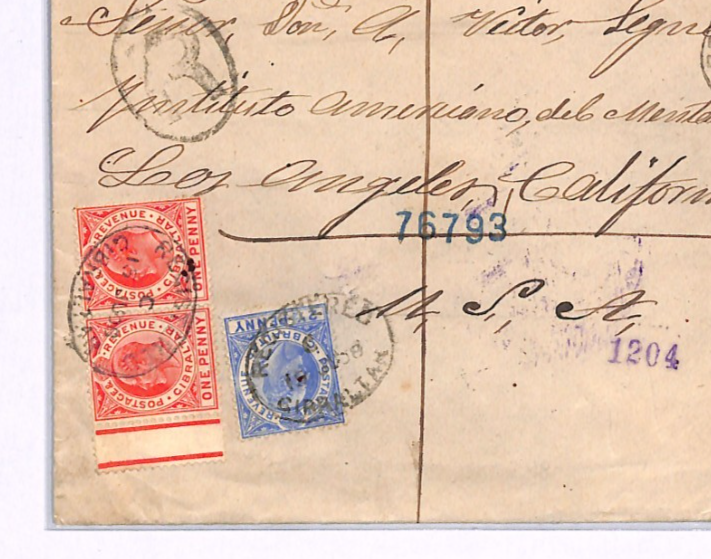 Señor, Don, A, Victor, Segu
R
Instituto Americano, del Menta
Los Angeles, California
76793
U, S, A,
1204
POSTAGE & REVENUE
GIBRALTAR
ONE PENNY
POSTAGE & REVENUE
GIBRALTAR
ONE PENNY
POSTAGE & REVENUE
GIBRALTAR
PENNY
REGISTERED
GIBRALTAR